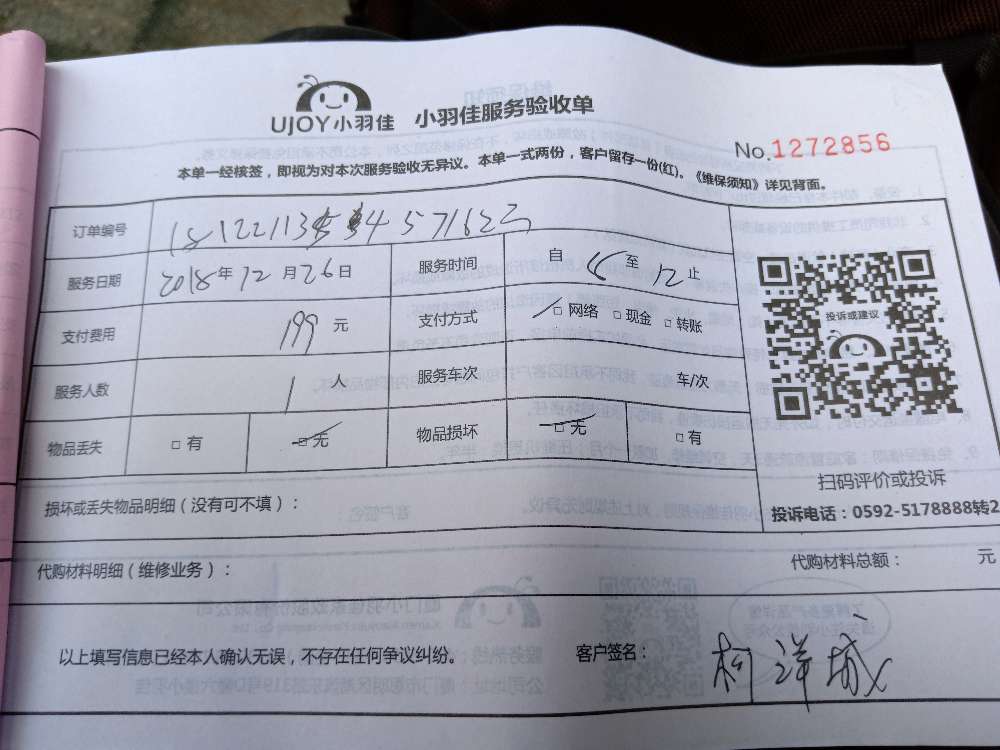 UJOY小羽佳 小羽佳服务验收单
No.1272856
本单一经核签，即视为对本次服务验收无异议。本单一式两份，客户留存一份(红)。《维保须知》详见背面。
订单编号
服务日期 2018年12月26日 服务时间 自 至 12 止
支付费用 199 元 支付方式 □ 网络 □ 现金 □ 转账
服务人数 1 人 服务车次 车/次
物品丢失 □ 有 □ 无 物品损坏 □ 无 □ 有
投诉或建议
扫码评价或投诉
投诉电话：0592-5178888转2
损坏或丢失物品明细（没有可不填）：
代购材料明细（维修业务）： 代购材料总额： 元
以上填写信息已经本人确认无误，不存在任何争议纠纷。 客户签名： 柯洋城